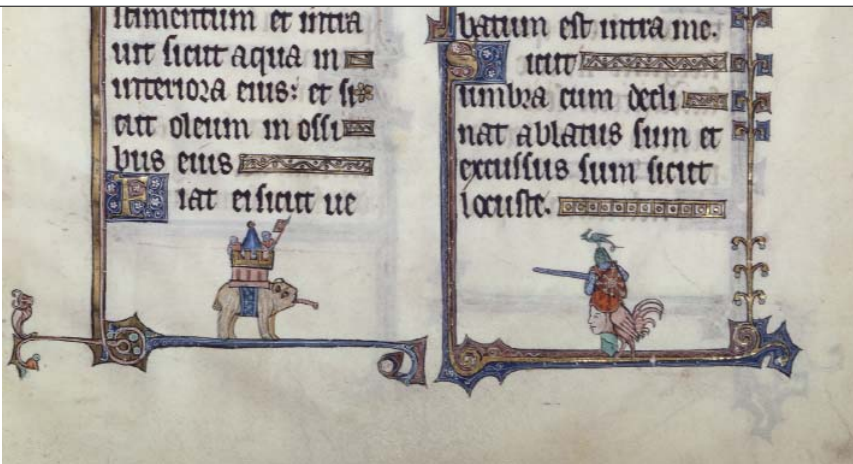 stimentum et intra
uit sicut aqua in
interiora eius: et si
cut oleum in ossi
bus eius
Fiat ei sicut ue
batum est intra me.
Sicut
umbra cum decli
nat ablatus sum et
excussus sum sicut
locuste.